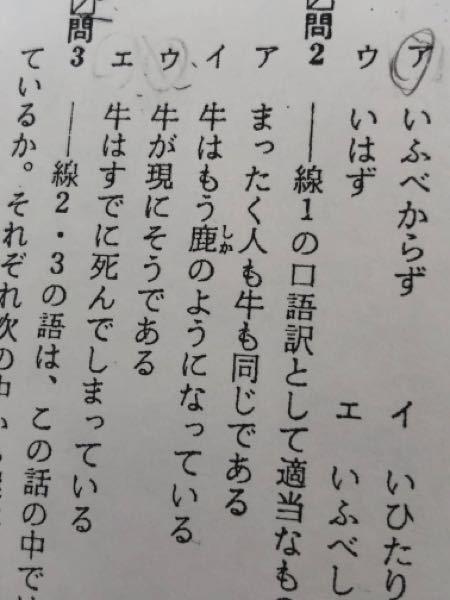 ア いふべからず
イ いひたり
ウ いはず
エ いふべし
問2 ――線1の口語訳として適当なもの
ア まったく人も牛も同じである
イ 牛はもう鹿のようになっている
しか
ウ 牛が現にそうである
エ 牛はすでに死んでしまっている
問3 ――線2・3の語は、この話の中で
ているか。それぞれ次の中から